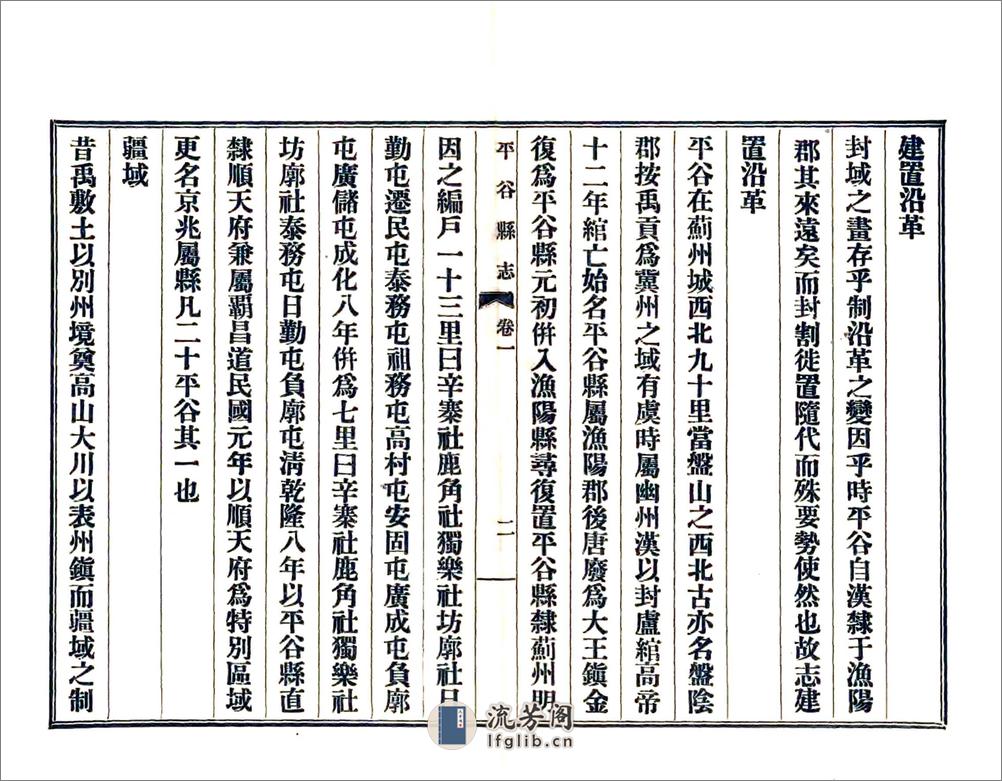 建置沿革
封域之畫存乎制沿革之變因乎時平谷自漢隸于漁陽
郡其來遠矣而封割徙置隨代而殊要勢使然也故志建
置沿革
平谷在薊州城西北九十里當盤山之西北古亦名盤陰
郡按禹貢爲冀州之域有虞時屬幽州漢以封盧綰高帝
十二年綰亡始名平谷縣屬漁陽郡後唐廢爲大王鎭金
復爲平谷縣元初倂入漁陽縣尋復置平谷縣隸薊州明
平谷縣志 卷一 二
因之編戶一十三里曰辛寨社鹿角社獨樂社坊廓社日
勤屯遷民屯泰務屯祖務屯高村屯安固屯廣成屯負廓
屯廣儲屯成化八年倂爲七里曰辛寨社鹿角社獨樂社
坊廓社泰務屯日勤屯負廓屯淸乾隆八年以平谷縣直
隸順天府兼屬霸昌道民國元年以順天府爲特別區域
更名京兆屬縣凡二十平谷其一也
疆域
昔禹敷土以別州境奠高山大川以表州鎭而疆域之制
流芳阁
lfglib.cn